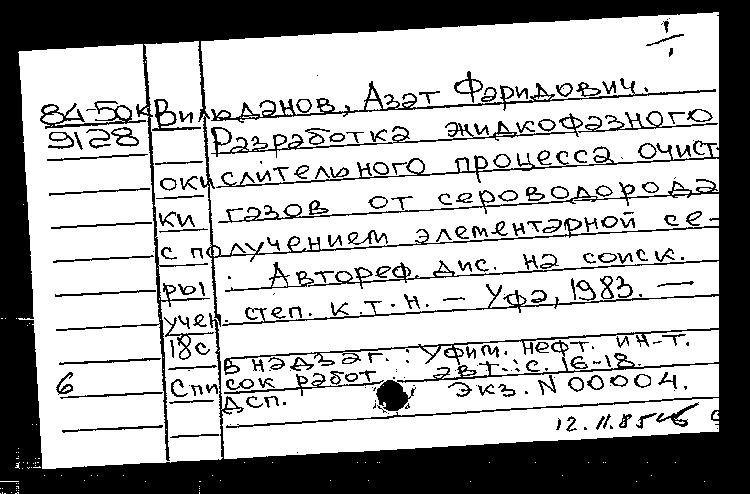 1/1
84-50к Вильданов, Азат Фаридович.
9128 Разработка жидкофазного
окислительного процесса очист-
ки газов от сероводорода
с получением элементарной се-
ры : Автореф. дис. на соиск.
учен. степ. к.т.н. — Уфа, 1983. —
18с
В надзаг. : Уфим. нефт. ин-т.
6 Список работ авт.: с. 16-18.
ДСП. Экз. N 00004.
12.11.85